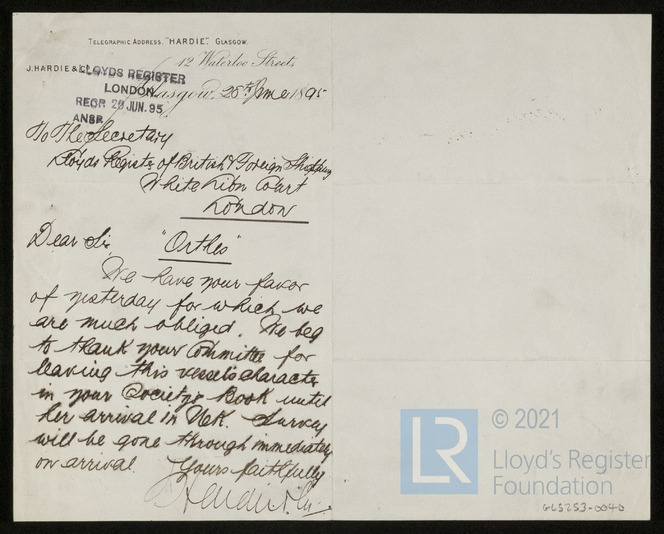 TELEGRAPHIC ADDRESS, "HARDIE", GLASGOW.
12 Waterloo Street,
J. HARDIE &
LLOYDS REGISTER
LONDON
RECR 29 JUN. 95
ANSR
Glasgow, 28th June 1895
To The Secretary
Lloyds Register of British & Foreign Shipping
White Lion Court
London
Dear Sir,
"Orthes"
We have your favor
of yesterday for which we
are much obliged. We beg
to thank your Committee for
leaving this vessel's character
in your Society's Book until
her arrival in U.K. Survey
will be gone through immediately
on arrival.
Yours faithfully
J Hardie & Co.
LR
© 2021
Lloyd's Register
Foundation
GLS253-0040